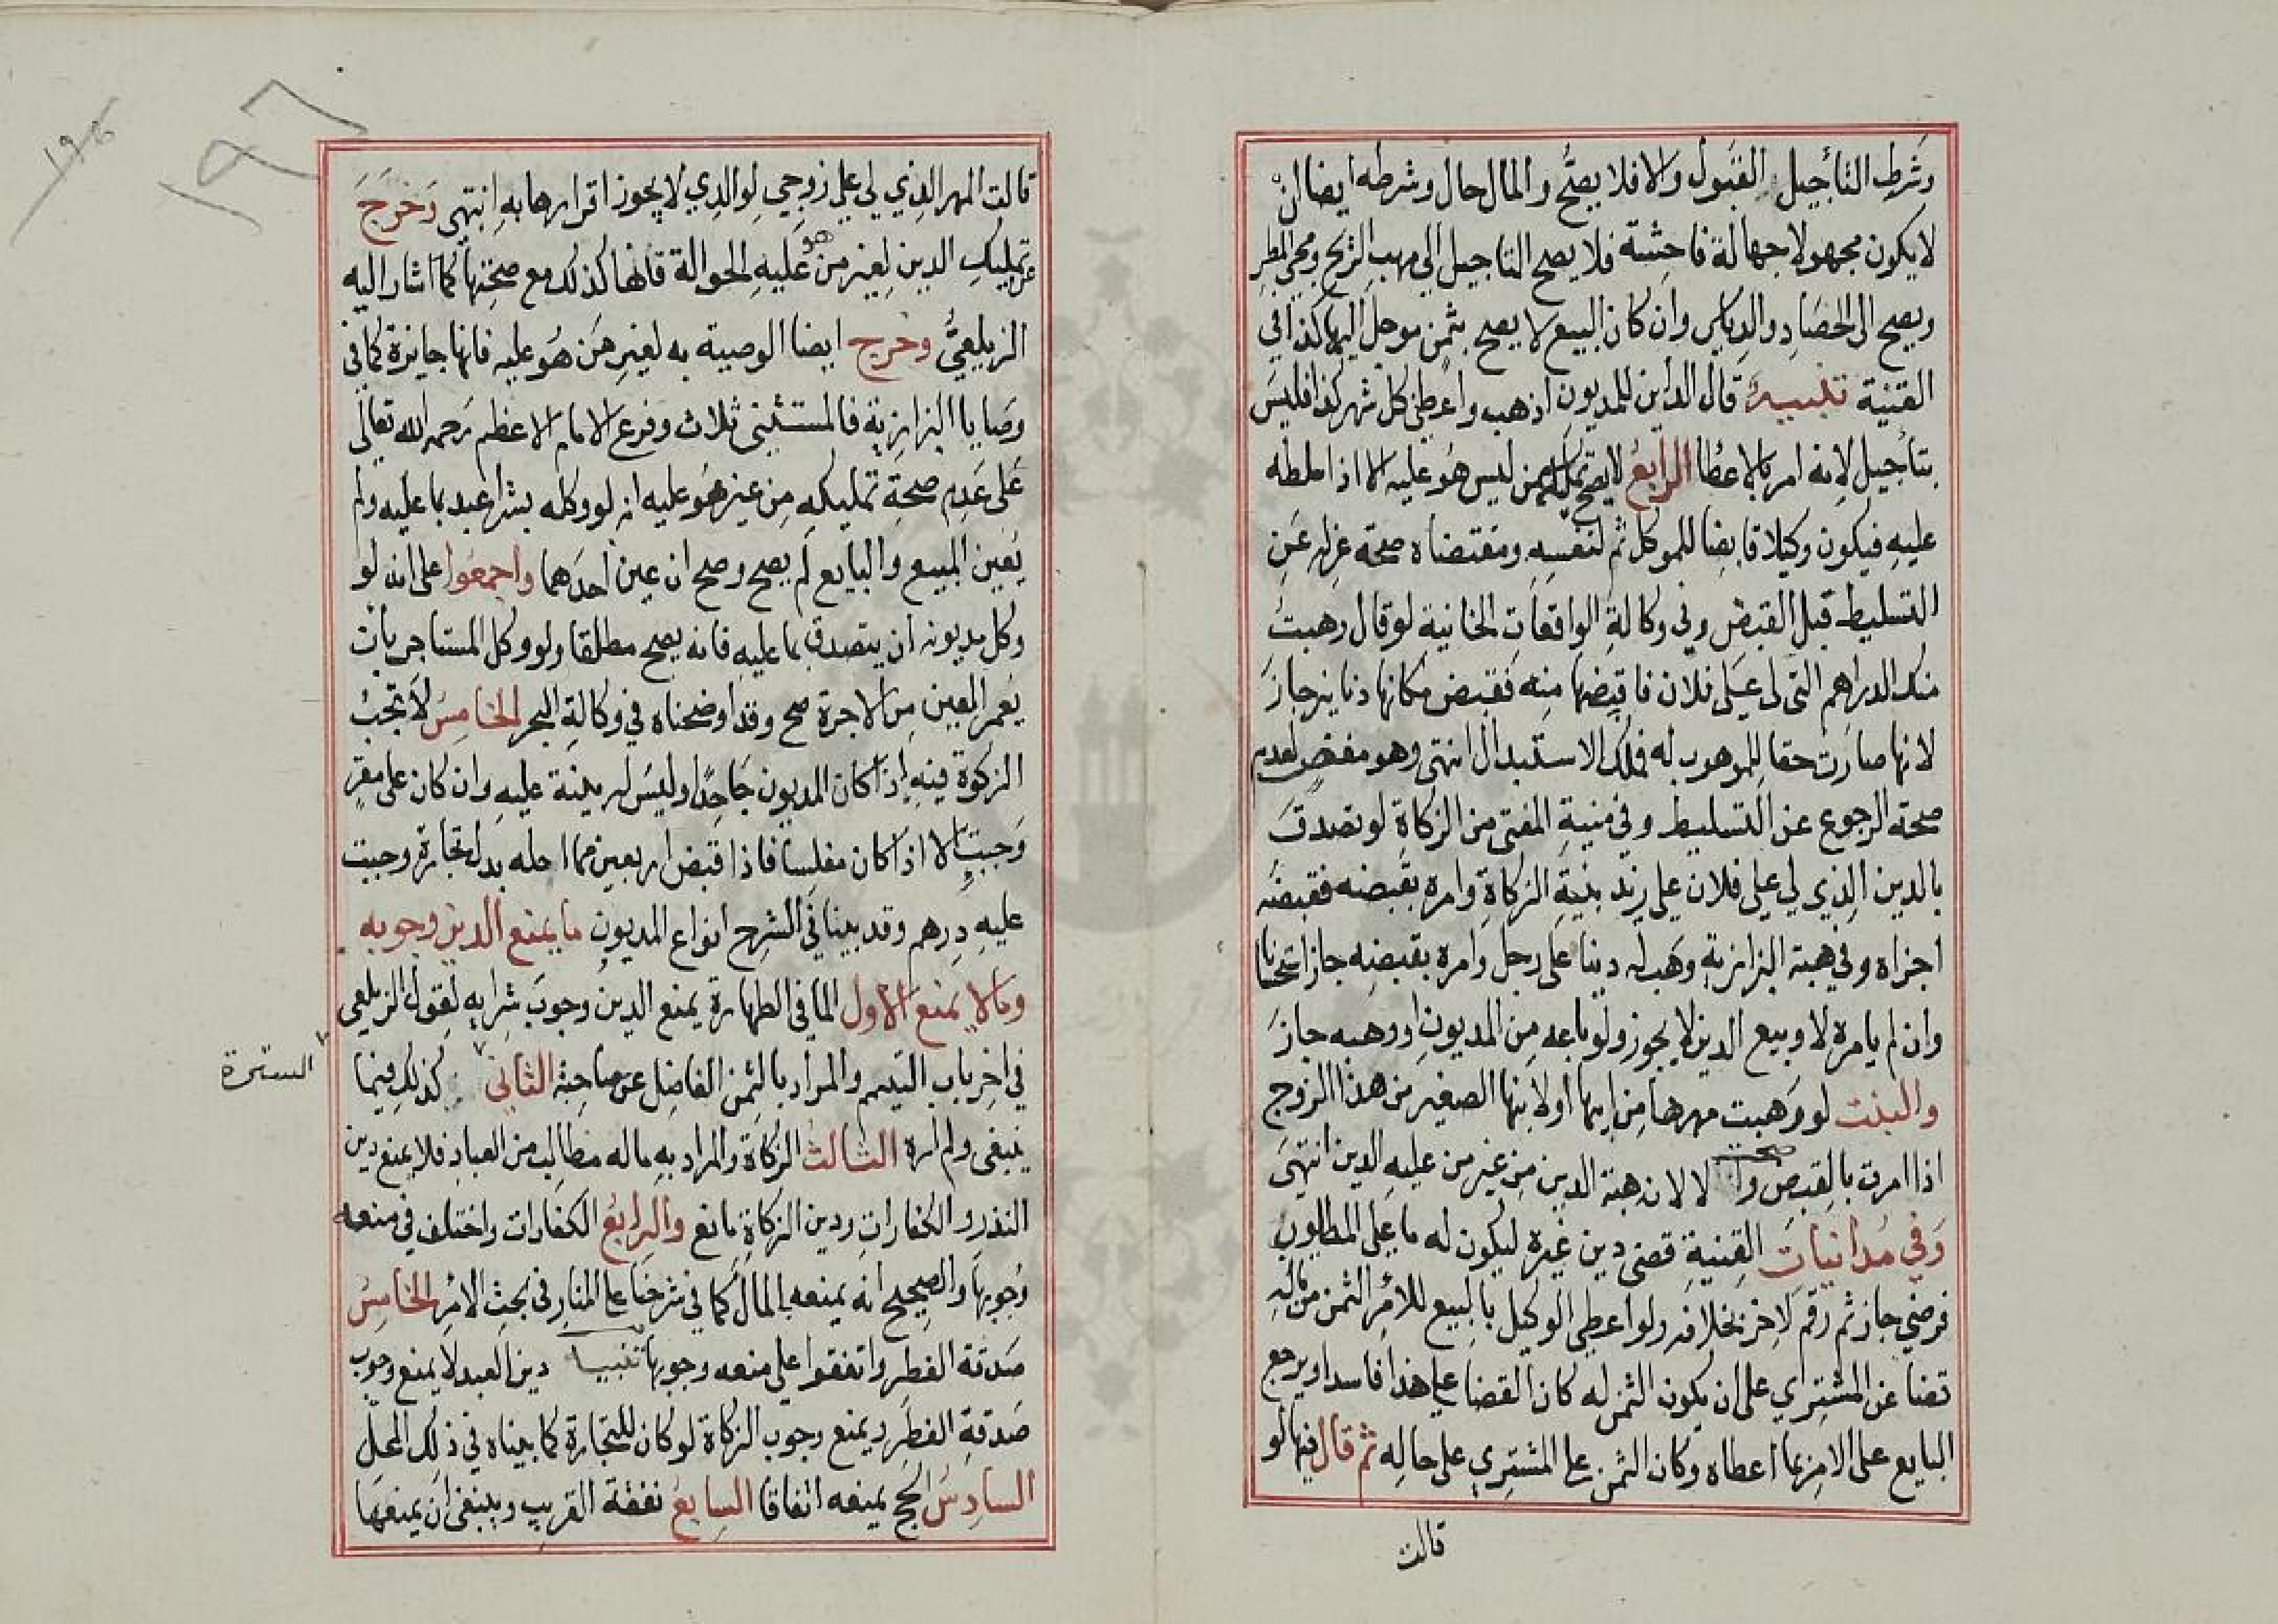 وشرط التأجيل القبول والا فلا يصح والمال حال وشرطه ايضا ان
لا يكون مجهولا جهالة فاحشة فلا يصح التاجيل الى مهب الريح ومجئ المطر
ويصح الى الحصاد والدياس وان كان البيع لا يصح بثمن موجل اليهما كذا في
القنية تنبيه قال الداين للمديون اذهب واعطني كل شهر كذا فليس
بتأجيل لانه امر بالاعطا الرابع لا يصح تمليكه ممن ليس هو عليه الا اذا سلطه
عليه فيكون وكيلا قابضا للموكل ثم لنفسه ومقتضاه صحة عزله عن
التسليط قبل القبض وفي وكالة الواقعات الخانية لو قال وهبت
منك الدراهم التي لى على فلان فاقبضها منه فقبض مكانها دنانير جاز
لانها صارت حقا للموهوب له فملك الاستبدال انتهى وهو مقتض لعدم
صحة الرجوع عن التسليط وفي منية المفتى من الزكاة لو تصدق
بالدين الذي لي على فلان على زيد بنية الزكاة وامره بقبضه فقبضه
اجزاه وفي هبة البزازية وهب له دينا على رجل وامره بقبضه جاز استحسانا
وان لم يامره لا وبيع الدين لا يجوز ولو باعه من المديون او وهبه جاز
والبنت لو وهبت مهرها من ابيها او لابنها الصغير من هذا الزوج
اذا امرت بالقبض صحت والا لا لان هبة الدين من غير من عليه الدين انتهى
وفي مداينات القنية قضى دين غيره ليكون له ما على المطلوب
فرضي جاز ثم رقم لاخر بخلافه ولو اعطى الوكيل بالبيع للأمر الثمن من ماله
قضا عن المشتري على ان يكون الثمن له كان القضا على هذا فاسدا ويرجع
البايع على الامر بما اعطاه وكان الثمن على المشتري على حاله ثم قال فيها لو
قالت
١٩٦
١٩٦
قالت المهر الذي لي على زوجي لوالدي لا يجوز اقرارها به انتهى وخرج
عن تمليك الدين لغير من هو عليه الحوالة فانها كذلك مع صحتها كما اشار اليه
الزيلعي وخرج ايضا الوصية به لغير من هو عليه فانها جايزة كما في
وصايا البزازية فالمستثنى ثلاث وفرع الامام الاعظم رحمه الله تعالى
على عدم صحة تمليكه من غير هو عليه انه لو وكله بشرا عبد بما عليه ولم
يعين المبيع والبايع لم يصح وصح ان عين احدهما واجمعوا على انه لو
وكل مديونه ان يتصدق بما عليه فانه يصح مطلقا ولو وكل المستاجر بان
يعمر العين من الاجرة صح وقد اوضحناه في وكالة البحر الخامس لا تجب
الزكوة فيه اذا كان المديون جاحدا وليس له بينة عليه وان كان على مقر
وجبت الا اذا كان مفلسا فاذا قبض اربعين مما اصله بدل تجارة وجبت
عليه درهم وقد بينا في الشرح انواع المديون ما يمنع الدين وجوبه
وما لا يمنع الاول الما في الطهارة يمنع الدين وجوب شرايه لقول الزيلعي
في اخر باب التيمم والمراد بالثمن الفاضل عن حاجته الثاني كذلك فيما
السترة
ينبغي ولم اره الثالث الزكاة والمراد به ماله مطالب من العباد فلا يمنع دين
النذر والكفارات ودين الزكاة مانع والرابع الكفارات واختلف في منعه
وجوبها والصحيح انه يمنعه بالمال كما في شرحنا على المنار في بحث الامر الخامس
صدقة الفطر واتفقوا على منعه وجوبها تنبيه دين العبد لا يمنع وجوب
صدقة الفطر ويمنع وجوب الزكاة لو كان للتجارة كما بيناه في ذلك المحل
السادس الحج يمنعه اتفاقا السابع نفقة القريب وينبغي ان يمنعها